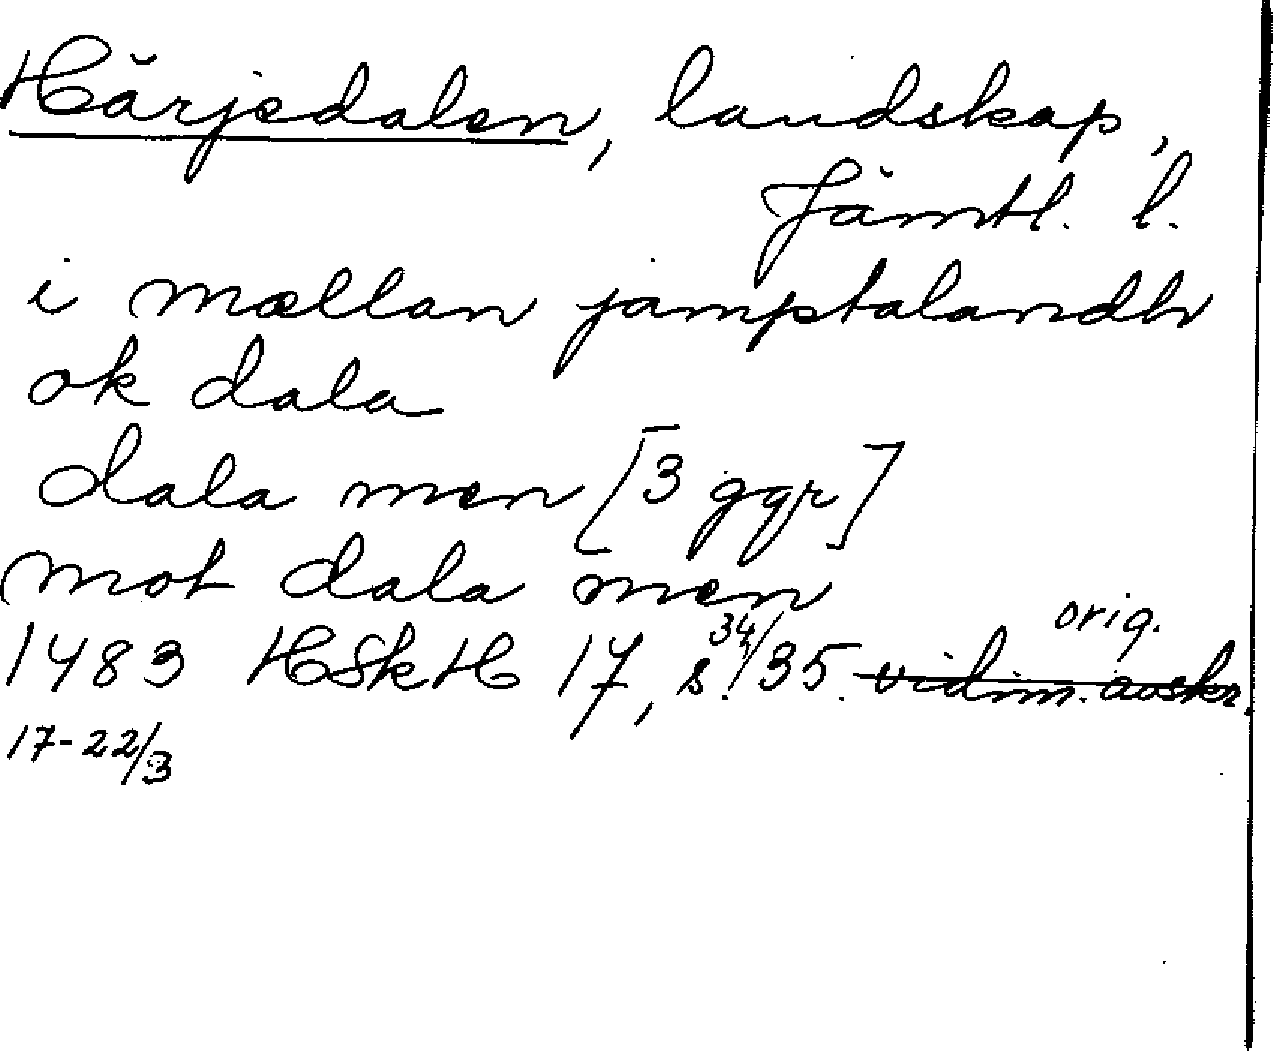 Härjedalen, landskap,
Jämtl. l.
i mællan jamptalandh
ok dala
dala men [3 ggr]
mot dala men
1483 HSkH 17, s. 34/35. vidim. avskr. orig.
17-22/3